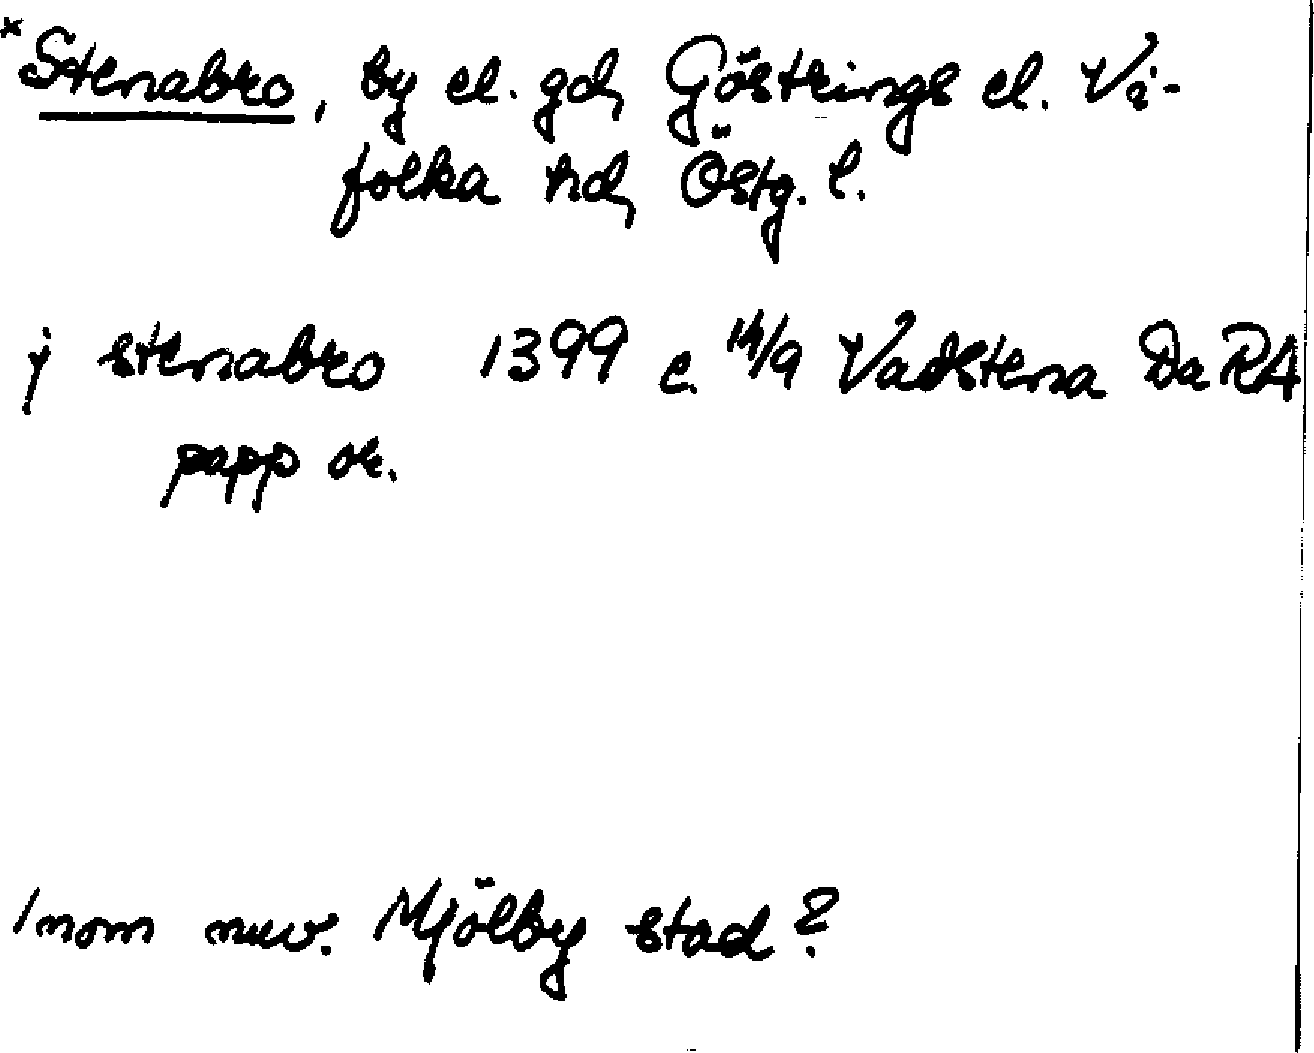 *Stenabro, by el. gd, Göstrings el. Vi-
folka hd, Östg. l.
j stenabro 1399 e. 14/9 Vadstena Da RA
papp or.
Inom nuv. Mjölby stad?